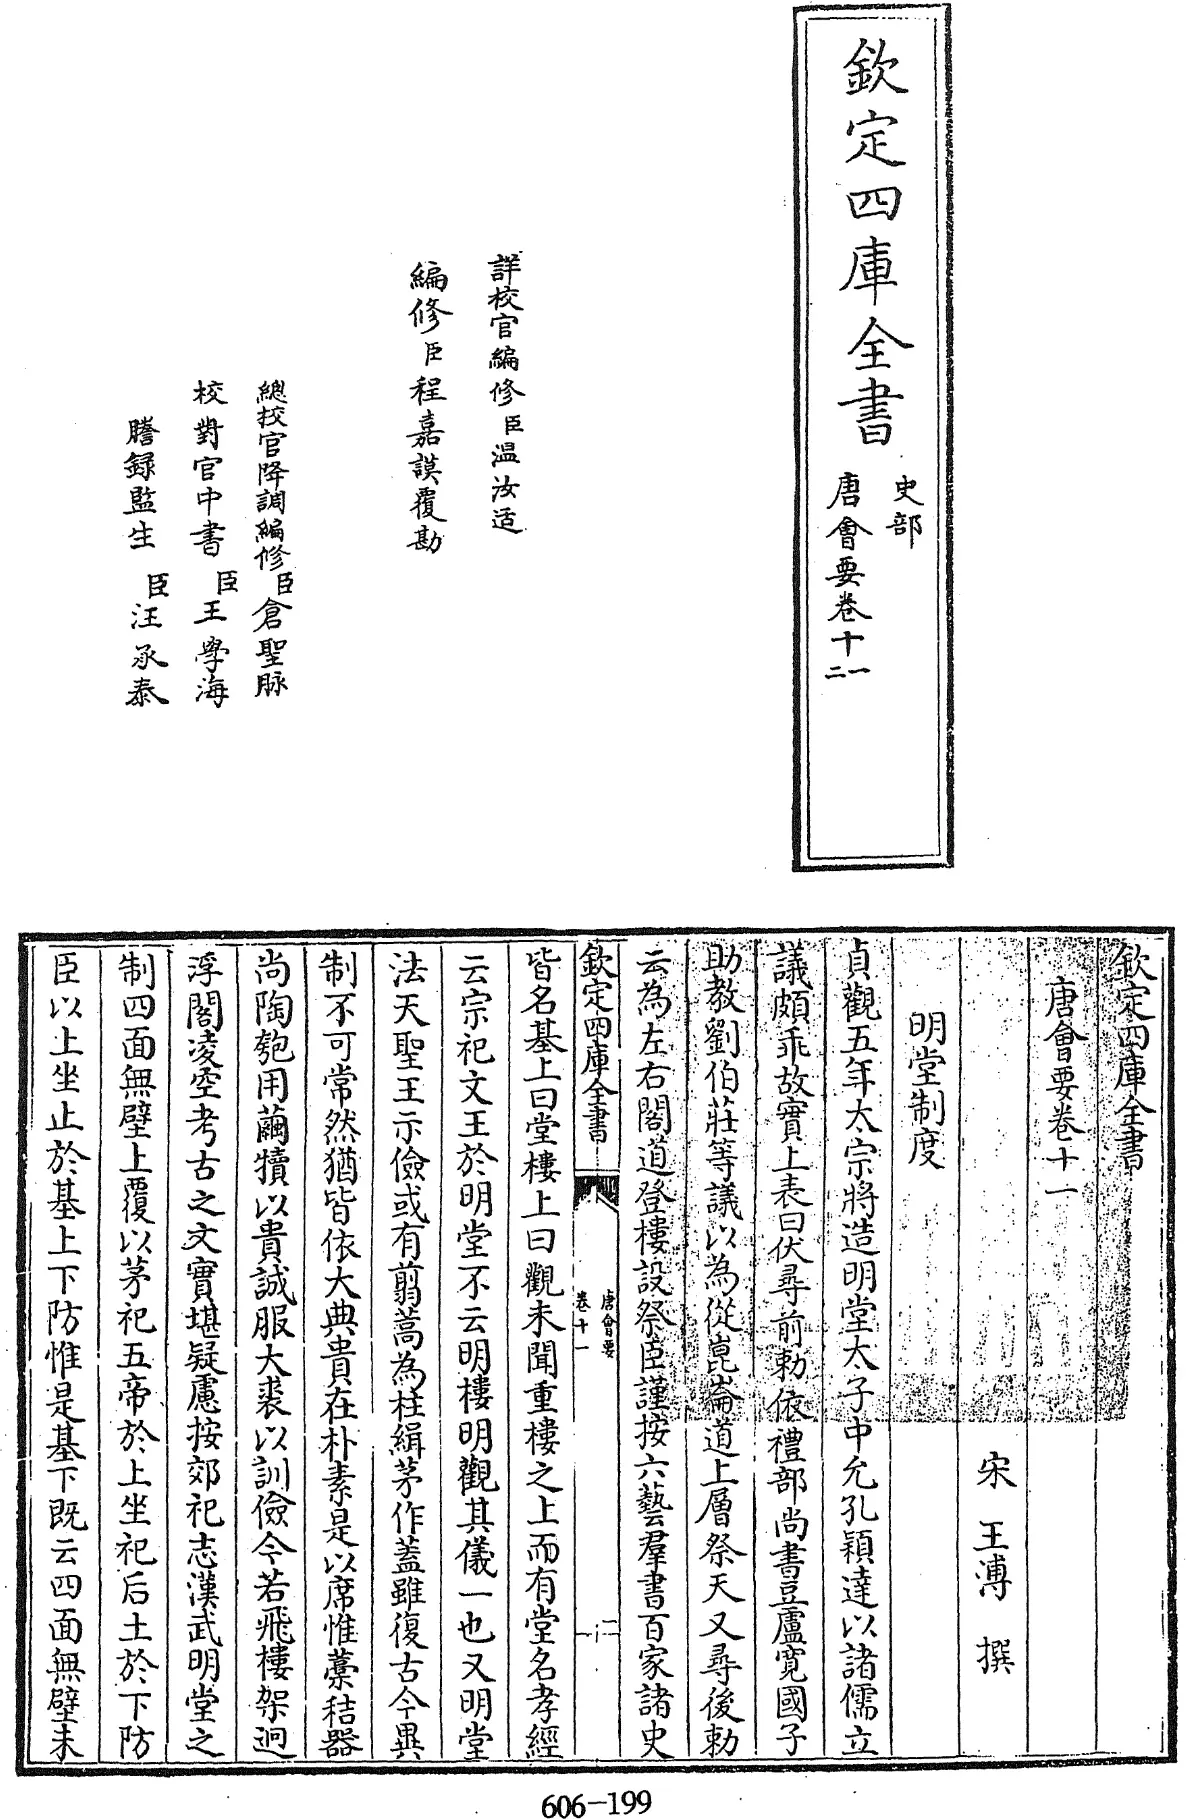 欽定四庫全書
史部
唐會要卷十一
二
詳校官編修臣温汝适
編修臣程嘉謨覆勘
總校官降調編修臣倉聖脉
校對官中書臣王學海
謄録監生臣汪承泰
欽定四庫全書
唐會要卷十一
宋王溥撰
明堂制度
貞觀五年太宗將造明堂太子中允孔穎達以諸儒立
議頗乖故實上表曰伏尋前勅依禮部尚書豆盧寛國子
助教劉伯莊等議以為從崑崙道上層祭天又尋後勅
云為左右閣道登樓設祭臣謹按六藝羣書百家諸史
欽定四庫全書
唐會要
卷十一
皆名基上曰堂樓上曰觀未聞重樓之上而有堂名孝經
云宗祀文王於明堂不云明樓明觀其儀一也又明堂
法天聖王示儉或有翦蒿為柱緝茅作蓋雖復古今異
制不可常然猶皆依大典貴在朴素是以席惟藁秸器
尚陶匏用繭犢以貴誠服大裘以訓儉今若飛樓架迥
浮閣凌空考古之文實堪疑慮按郊祀志漢武明堂之
制四面無壁上覆以茅祀五帝於上坐祀后土於下防
臣以上坐止於基上下防惟是基下既云四面無壁未
606-199